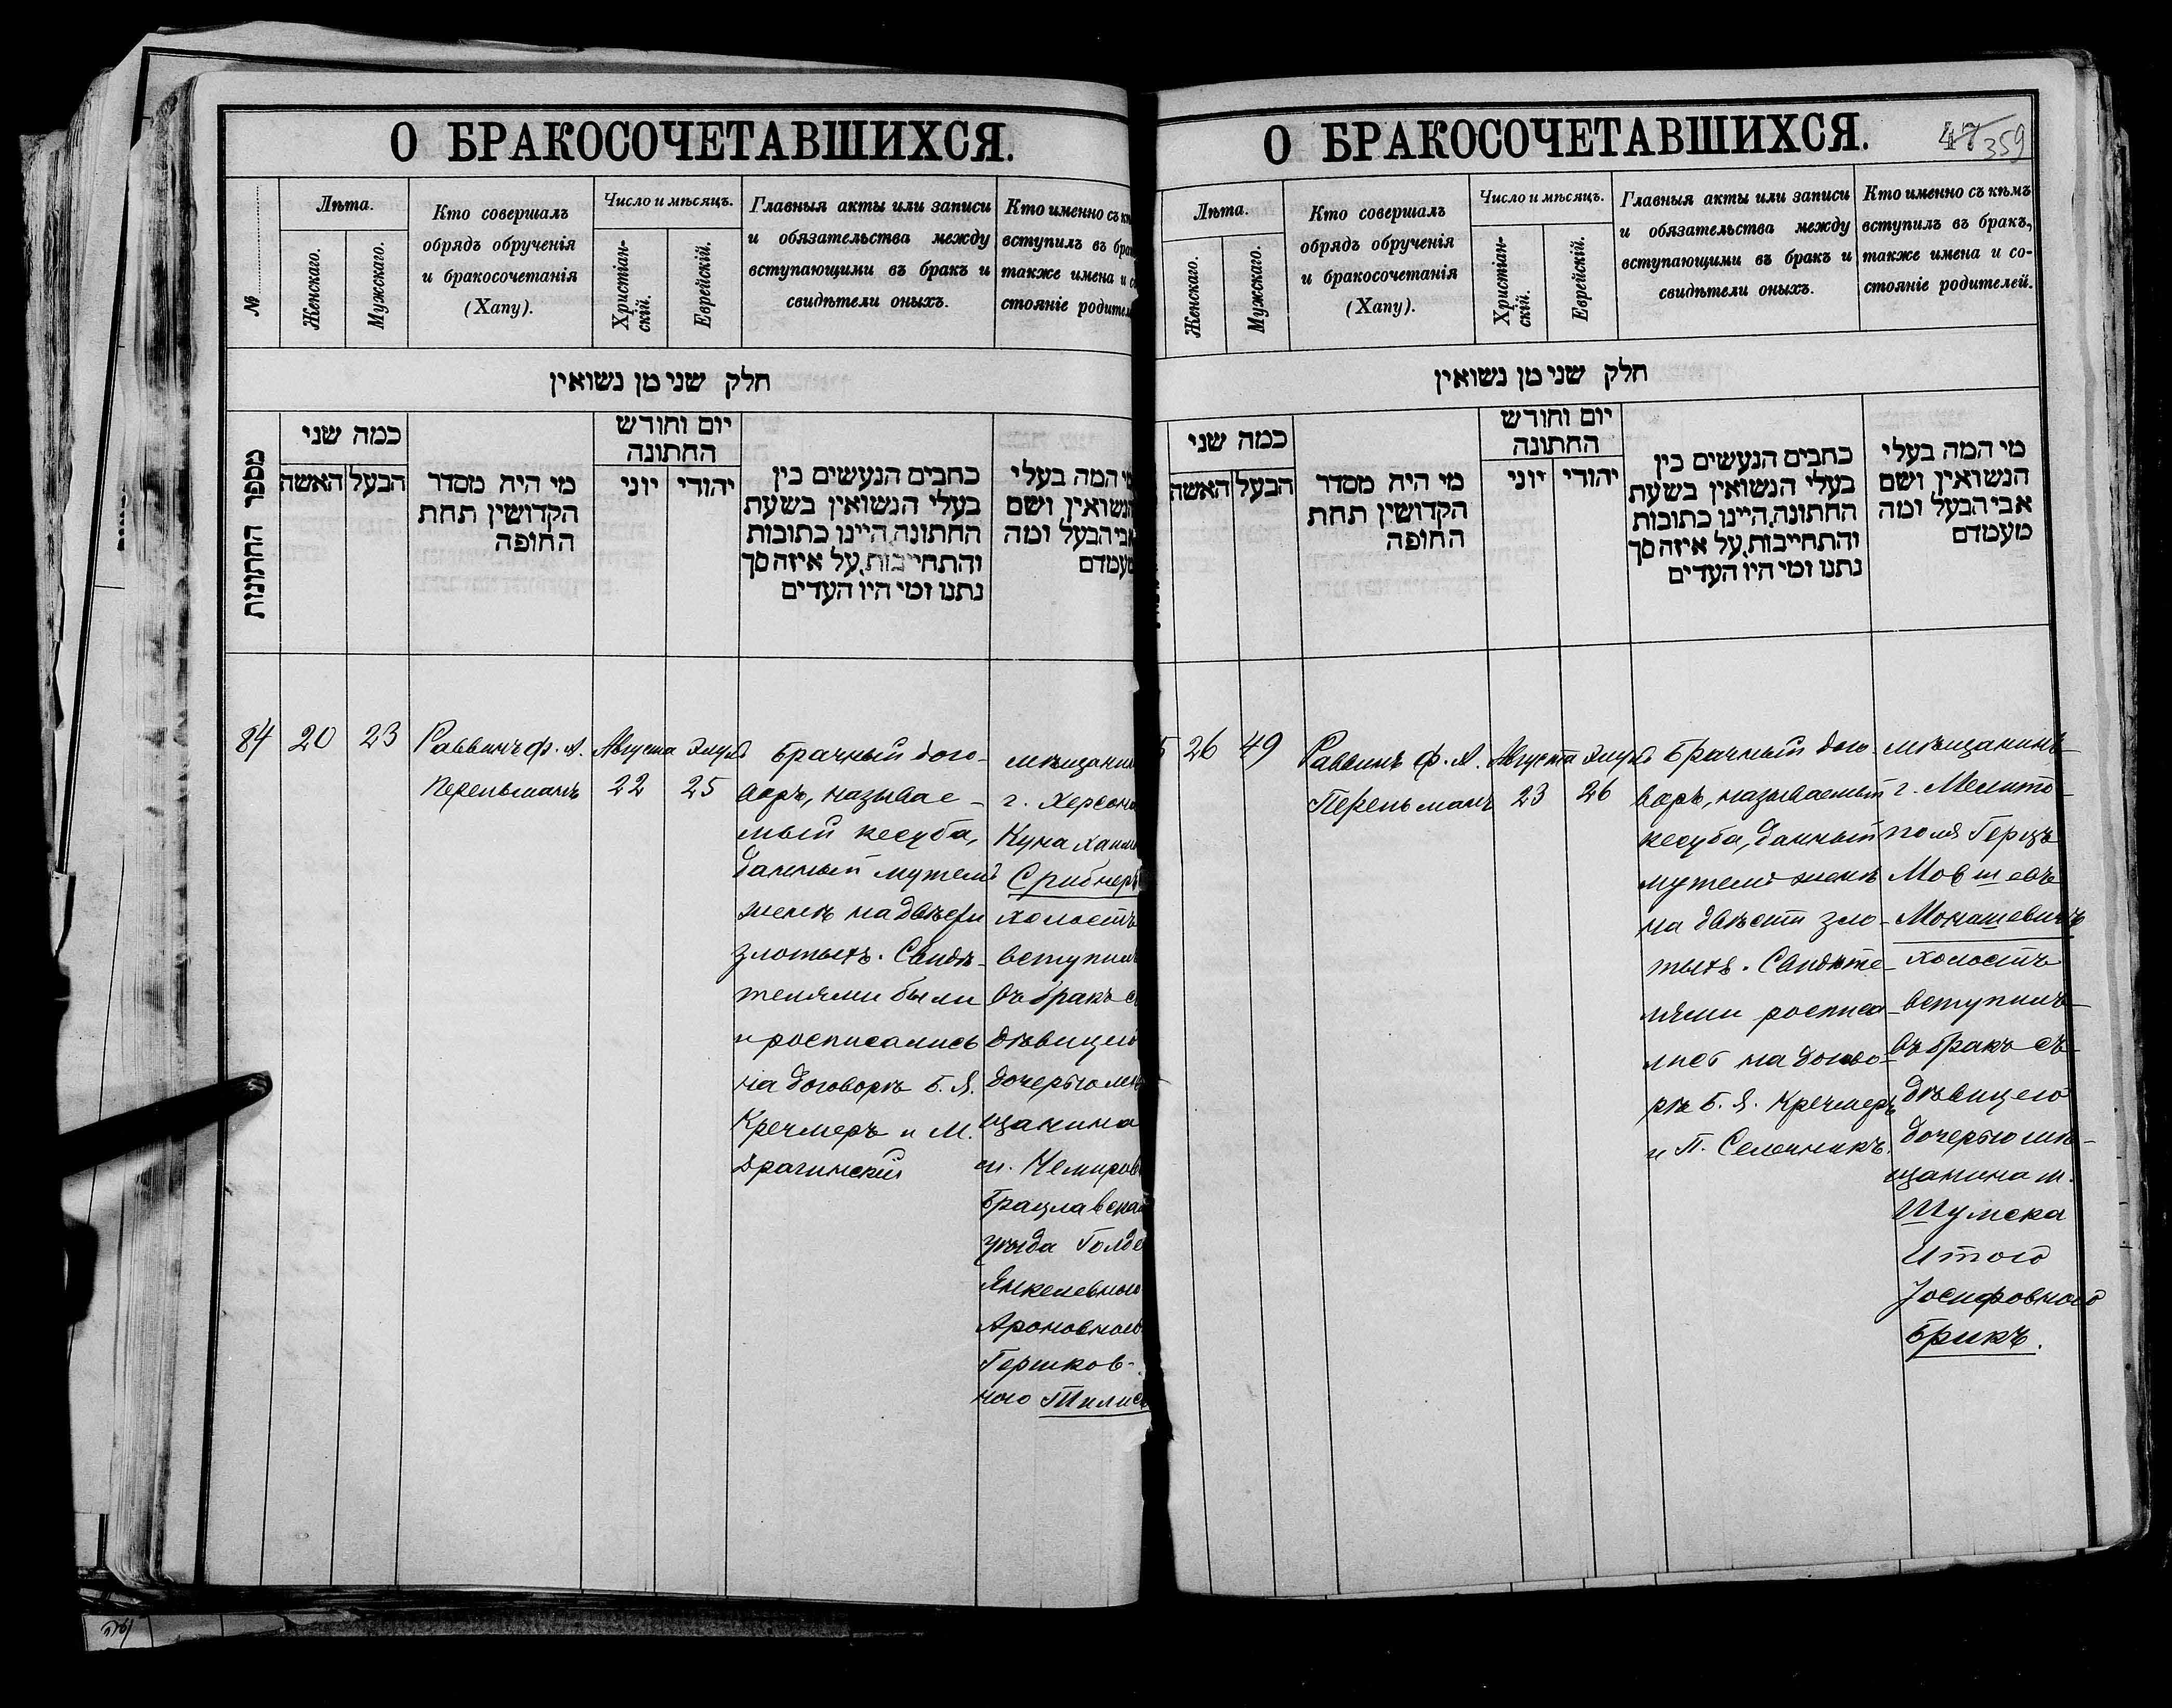 О БРАКОСОЧЕТАВШИХСЯ.
№
Лѣта.
Женскаго.
Мужскаго.
Кто совершалъ
обрядъ обрученія
и бракосочетанія
(Хапу).
Число и мѣсяцъ.
Христіан-
скій.
Еврейскій.
Главныя акты или записи
и обязательства между
вступающими въ бракъ и
свидѣтели оныхъ.
Кто именно съ
вступилъ въ
также имена и
стояніе
חלק שני מן נשואין
מספר החתונות
כמה שני
האשה
הבעל
מי היה מסדר
הקדושין תחת
החופה
יום וחודש
החתונה
יוני
יהודי
כתבים הנעשים בין
בעלי הנשואין בשעת
החתונה, היינו כתובות
והתחייבות, על איזה סך
נתנו ומי היו העדים
מי המה בעלי
הנשואין ושם
אבי הבעל ומה
מעמדם
84
20
23
Раввинъ Ф. А.
Перельманъ
Августа
22
Элулъ
25
Брачный дого-
воръ, называе-
мый кесуба,
данный мужемъ
женѣ на двѣсти
злотыхъ. Свидѣ-
телями были
и росписались
на договорѣ Б. Я.
Кречмеръ и М.
Драгинскій
мѣщанинъ
г. Херсона
Куна
Срибнеръ
холостъ
вступилъ
въ бракъ съ
дѣвицею
дочерью мѣ
щанина
м. Немирова
Брацлавскаго
уѣзда Голдою
Янкелевною
Ароновною
Гершков-
ною
О БРАКОСОЧЕТАВШИХСЯ.
47 359
Лѣта.
Женскаго.
Мужскаго.
Кто совершалъ
обрядъ обрученія
и бракосочетанія
(Хапу).
Число и мѣсяцъ.
Христіан-
скій.
Еврейскій.
Главныя акты или записи
и обязательства между
вступающими въ бракъ и
свидѣтели оныхъ.
Кто именно съ кѣмъ
вступилъ въ бракъ,
также имена и со-
стояніе родителей.
חלק שני מן נשואין
כמה שני
האשה
הבעל
מי היה מסדר
הקדושין תחת
החופה
יום וחודש
החתונה
יוני
יהודי
כתבים הנעשים בין
בעלי הנשואין בשעת
החתונה, היינו כתובות
והתחייבות, על איזה סך
נתנו ומי היו העדים
מי המה בעלי
הנשואין ושם
אבי הבעל ומה
מעמדם
5
26
49
Раввинъ Ф. А.
Перельманъ
Августа
23
Элулъ
26
Брачный дого
воръ, называемый
кесуба, данный
мужемъ женѣ
на двѣсти зло-
тыхъ. Свидѣте-
лями росписа-
лись на догово-
рѣ Б. Я. Кречмеръ
и П. Селечникъ.
мѣщанинъ
г. Мелито-
поля Герцъ
Мовшевъ
Монашевичъ
холостъ
вступилъ
въ бракъ съ
дѣвицею
дочерью мѣ-
щанина м.
Шумска
Итою
Іосифовною
Брикъ.